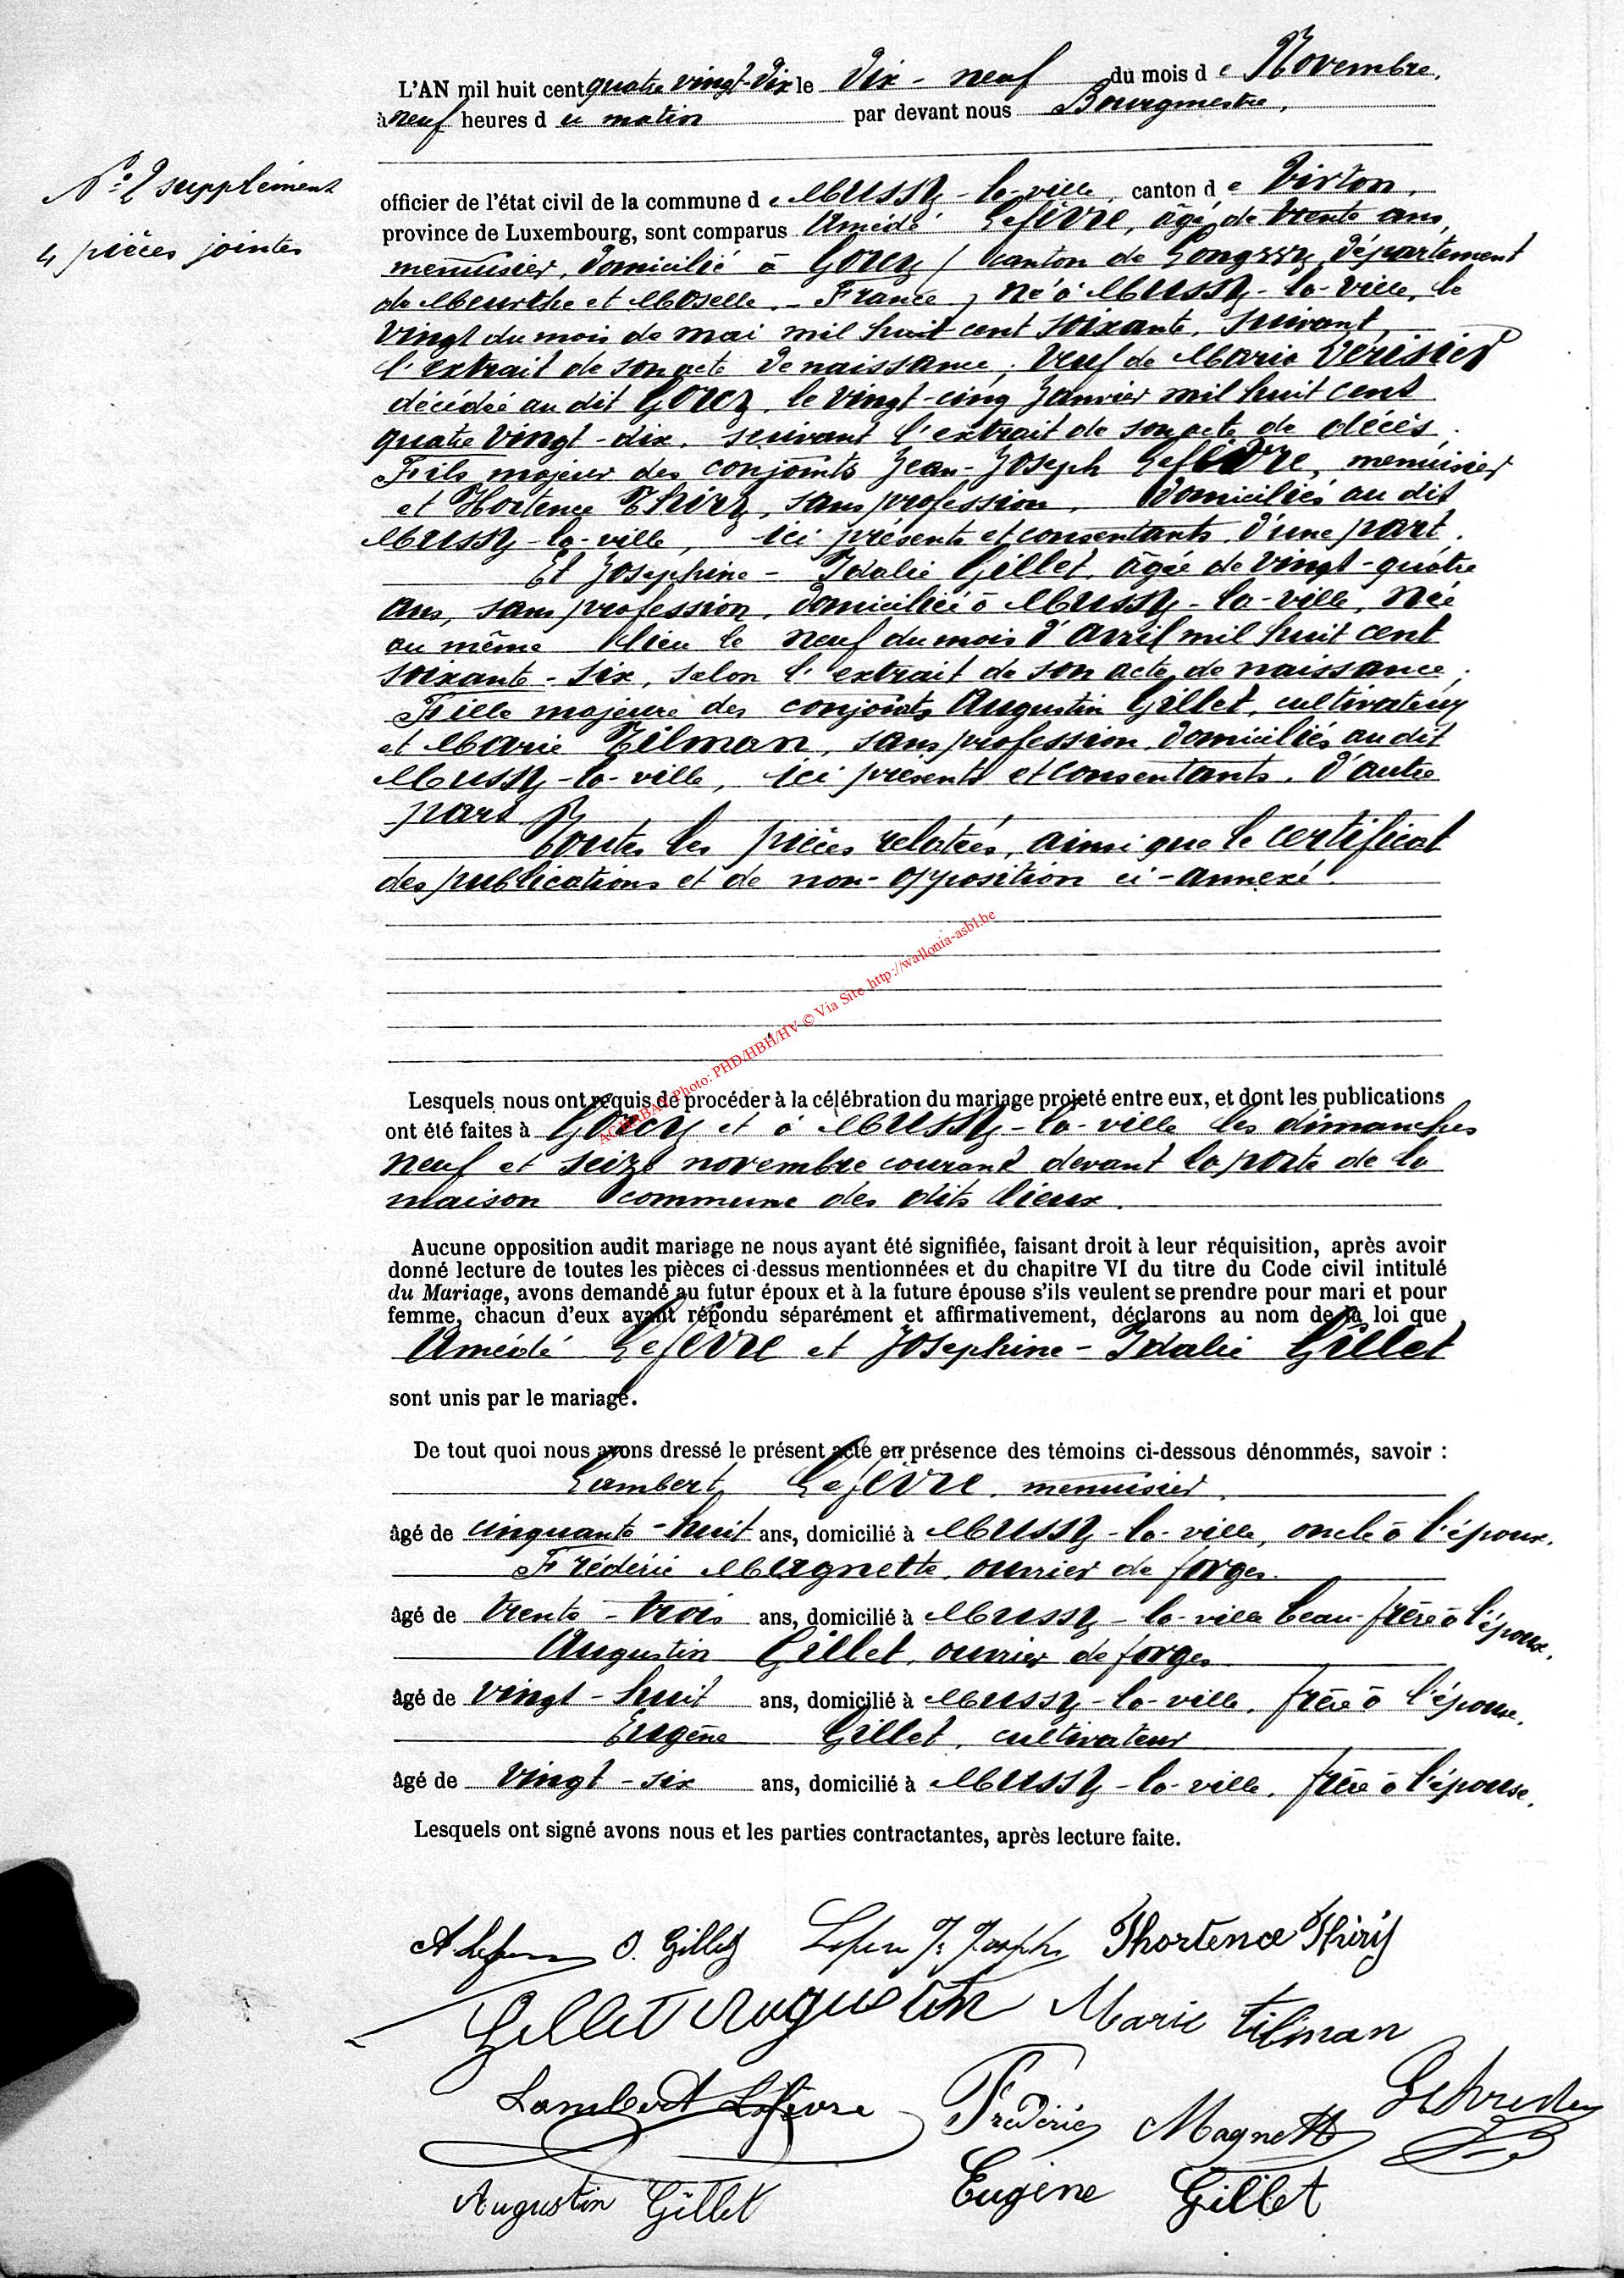 L'AN mil huit cent quatre vingt-dix le dix-neuf du mois de Novembre,
à neuf heures du matin par devant nous Bourgmestre,
N° 2 supplément
officier de l'état civil de la commune de Mussy-la-ville, canton de Virton,
4 pièces jointes
province de Luxembourg, sont comparus Amédé Lefèvre, âgé de trente ans,
menuisier, domicilié à Gorcy (canton de Longwy, département
de Meurthe et Moselle - France) né à Mussy-la-ville, le
vingt du mois de mai mil huit cent soixante, suivant
l'extrait de son acte de naissance; veuf de Marie Verisier
décédée au dit Gorcy, le vingt-cinq Janvier mil huit cent
quatre vingt-dix, suivant l'extrait de son acte de décès;
Fils majeur des conjoints Jean-Joseph Lefèvre, menuisier
et Hortence Thiry, sans profession, domiciliés au dit
Mussy-la-ville, ici présents et consentants, d'une part.
Et Josephine-Idalie Gillet, âgée de vingt-quatre
ans, sans profession, domiciliée à Mussy-la-ville, née
au même lieu le neuf du mois d'avril mil huit cent
soixante-six, selon l'extrait de son acte de naissance;
Fille majeure des conjoints Augustin Gillet, cultivateur
et Marie Tilman, sans profession, domiciliés au dit
Mussy-la-ville, ici présents et consentants, d'autre
part.
Toutes les pièces relatées, ainsi que le certificat
des publications et de non-opposition ci-annexé.
Photo: PHD/HBH/HV © Via Site http://wallonia-asbl.be
Lesquels nous ont requis de procéder à la célébration du mariage projeté entre eux, et dont les publications
ont été faites à Gorcy et à Mussy-la-ville les dimanches
neuf et seize novembre courant devant la porte de la
maison commune des dits lieux.
Aucune opposition audit mariage ne nous ayant été signifiée, faisant droit à leur réquisition, après avoir
donné lecture de toutes les pièces ci-dessus mentionnées et du chapitre VI du titre du Code civil intitulé
du Mariage, avons demandé au futur époux et à la future épouse s'ils veulent se prendre pour mari et pour
femme, chacun d'eux ayant répondu séparément et affirmativement, déclarons au nom de la loi que
Amédé Lefèvre et Josephine-Idalie Gillet
sont unis par le mariage.
De tout quoi nous avons dressé le présent acte en présence des témoins ci-dessous dénommés, savoir :
Lambert Lefèvre, menuisier,
âgé de cinquante-huit ans, domicilié à Mussy-la-ville, oncle à l'époux.
Frédéric Magnette, ouvrier de forges.
âgé de trente-trois ans, domicilié à Mussy-la-ville beau-frère à l'époux.
Augustin Gillet, ouvrier de forges
âgé de vingt-huit ans, domicilié à Mussy-la-ville, frère à l'épouse.
Eugène Gillet, cultivateur
âgé de vingt-six ans, domicilié à Mussy-la-ville, frère à l'épouse.
Lesquels ont signé avons nous et les parties contractantes, après lecture faite.
Gillet Thortence Thiry
Gillet Augustin Marie tilman
Lambert Lefèvre Frédéric Magnette
Augustin Gillet Eugène Gillet